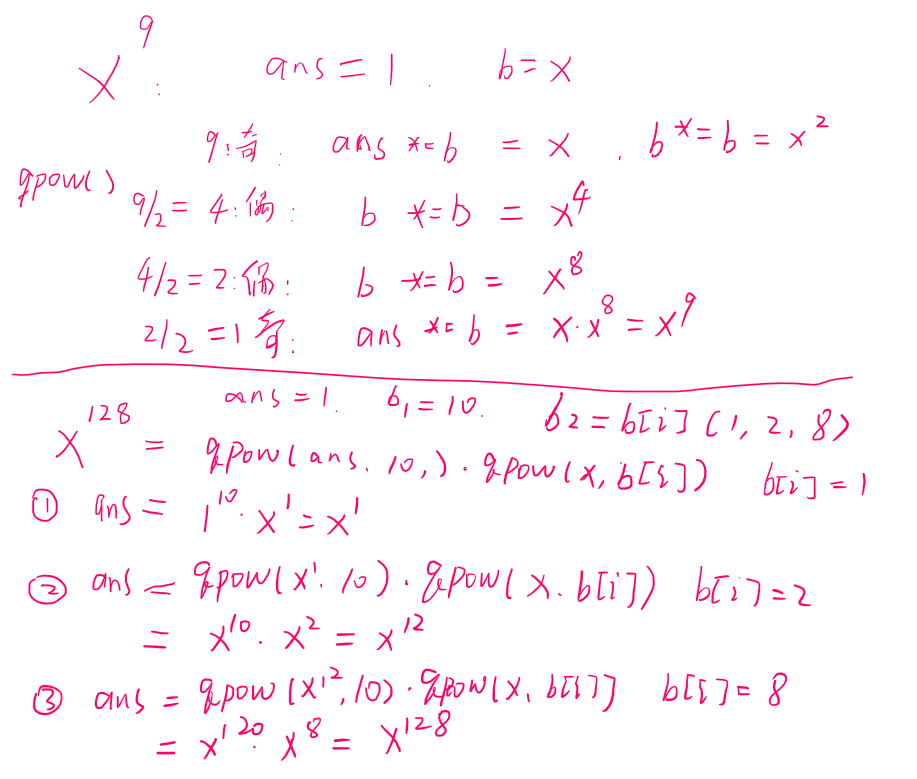 x^9 : ans = 1. b = x
9:奇: ans *= b = x. b *= b = x^2
qpow()
9/2 = 4:偶: b *= b = x^4
4/2 = 2:偶: b *= b = x^8
2/2 = 1 奇: ans *= b = x·x^8 = x^9
ans = 1. b_1 = 10. b_2 = b[i] (1, 2, 8)
x^128 = qpow(ans. 10,)·qpow(x, b[i]) b[i] = 1
① ans = 1^10·x^1 = x^1
② ans = qpow(x^1. 10)·qpow(x. b[i]) b[i] = 2
= x^10·x^2 = x^12
③ ans = qpow(x^12, 10)·qpow(x, b[i]] b[i] = 8
= x^120·x^8 = x^128